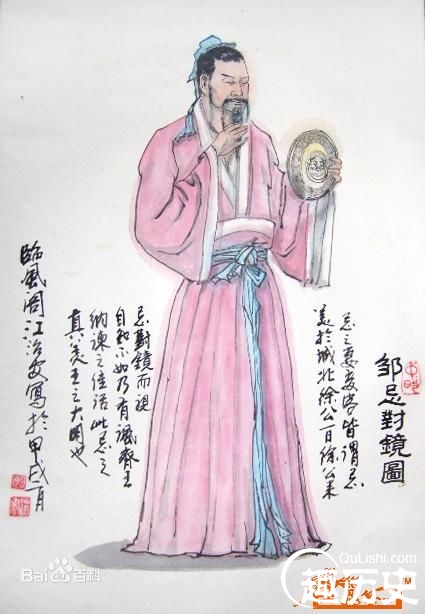 邹忌對鏡圖
忌之妻妾客皆谓忌
美於城北徐公一日徐公来
忌對鏡而視
自知不如乃有諷齊王
納諫之佳话此忌之
真美王之大用也
臨風周江治安寫於甲戌月
Bai 百科
QuLishi.com
趣历史